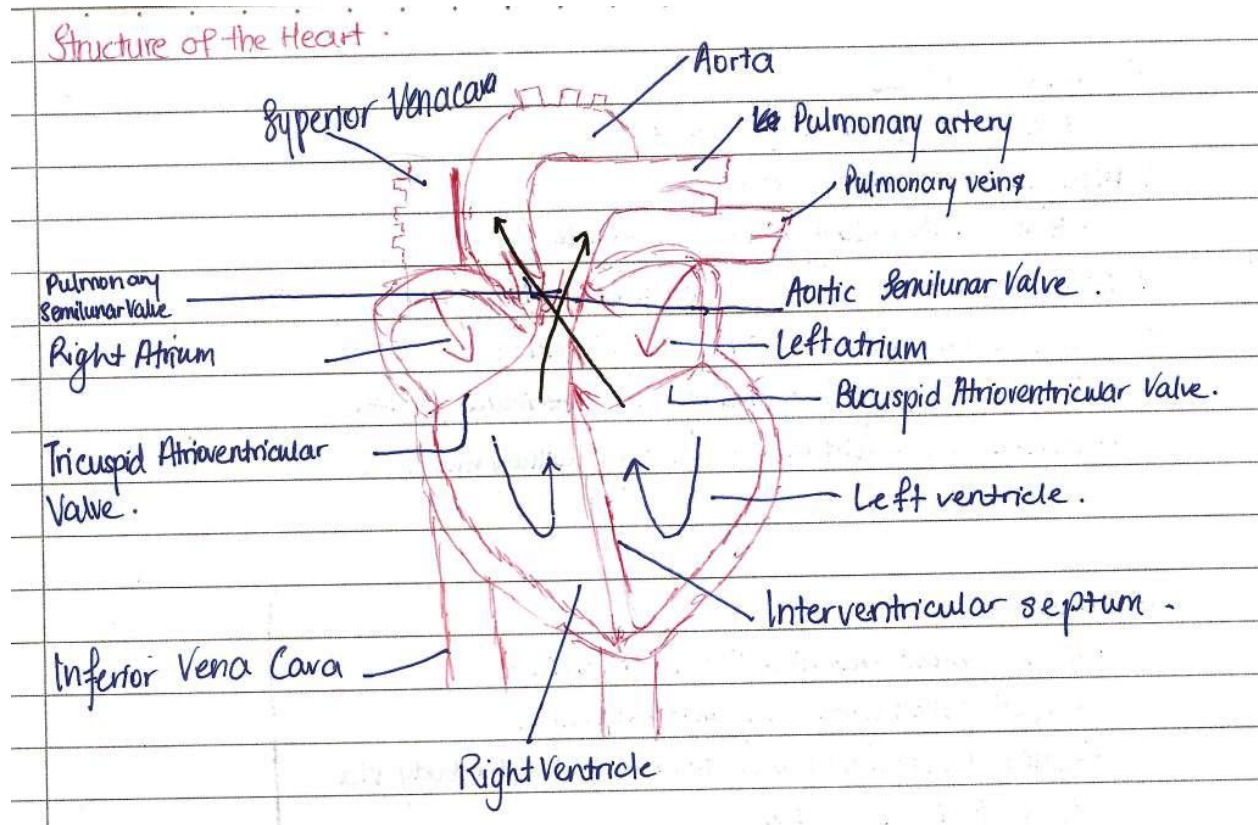 Structure of the Heart.
Aorta
Superior Venacava
Pulmonary artery
Pulmonary veins
Pulmonary
Semilunar Valve
Aortic Semilunar Valve.
Right Atrium
Left atrium
Bicuspid Atrioventricular Valve.
Tricuspid Atrioventricular
Valve.
Left ventricle.
Interventricular septum.
Inferior Vena Cava
Right Ventricle